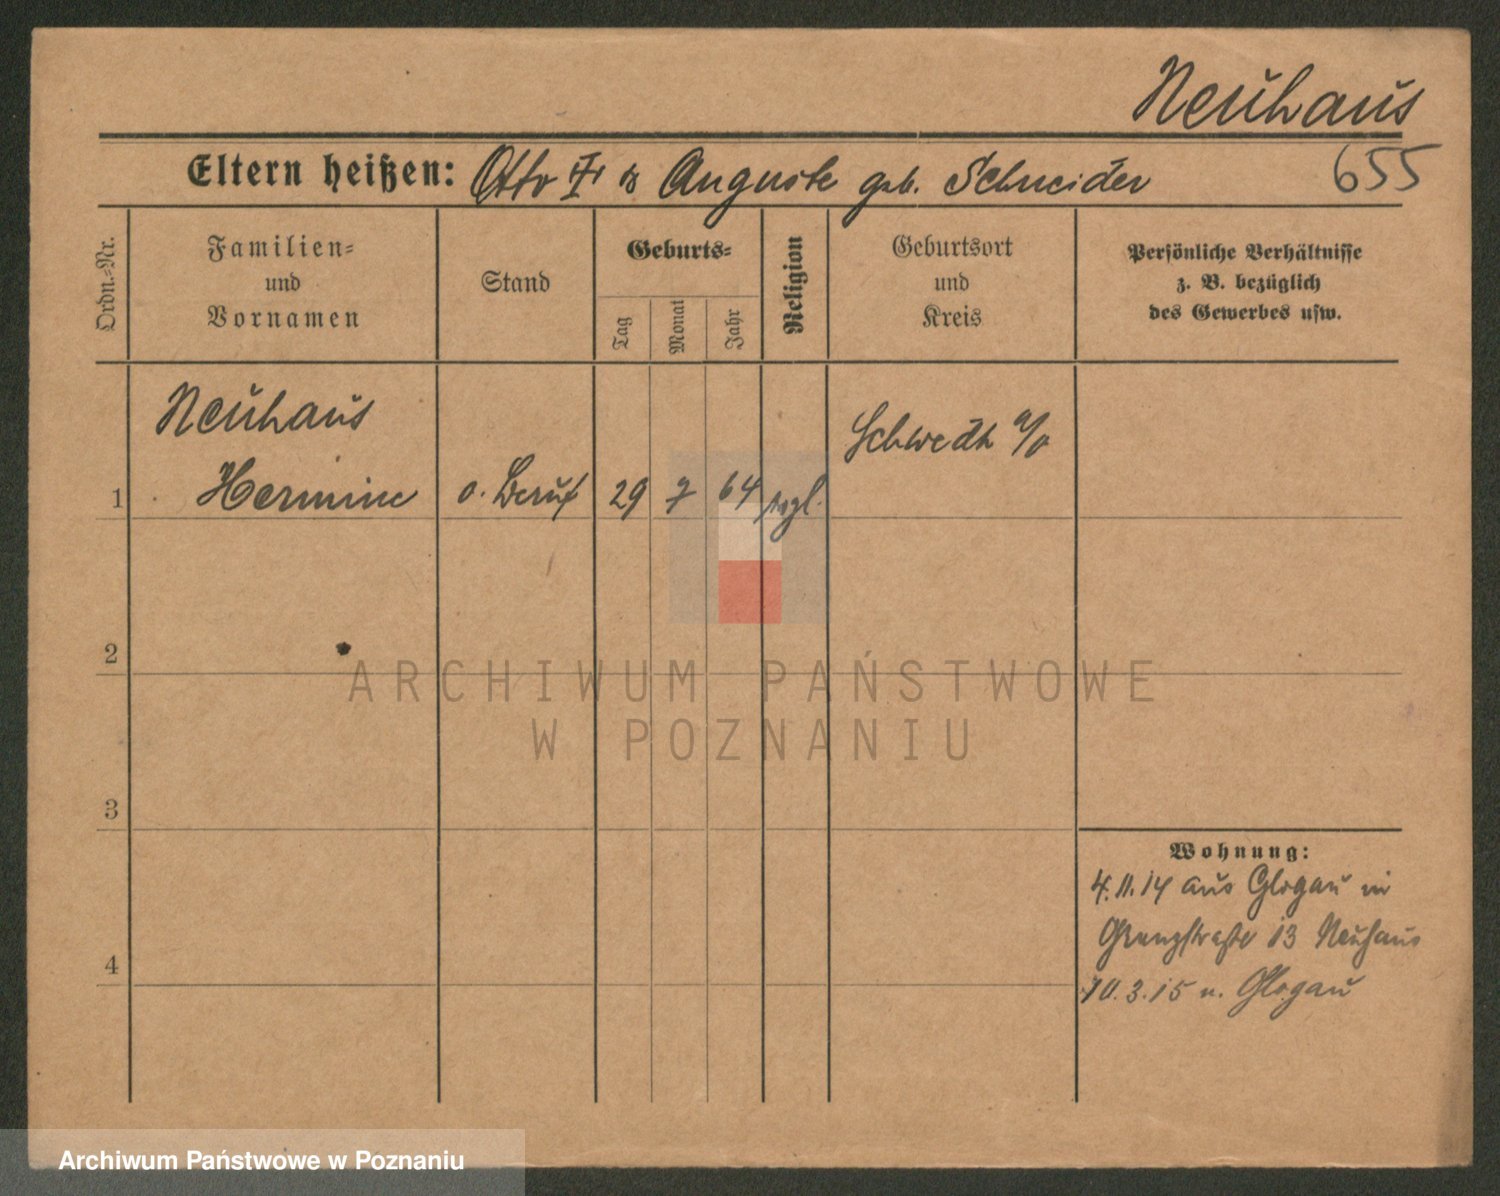 Neuhaus
655
Eltern heißen: Otto u Auguste geb. Schneider
Ordn.=Nr.
Familien=
und
Vornamen
Stand
Geburts=
Tag
Monat
Jahr
Religion
Geburtsort
und
Kreis
Persönliche Verhältnisse
z. B. bezüglich
des Gewerbes usw.
Neuhaus
1 Hermine o. Beruf 29 7 64 evgl.
Schwedt a/o
2
3
4
Wohnung:
4.11.14 aus Glogau in
Grenzstraße 13 Neuhaus
10.3.15 n. Glogau
ARCHIWUM PAŃSTWOWE
W POZNANIU
Archiwum Państwowe w Poznaniu